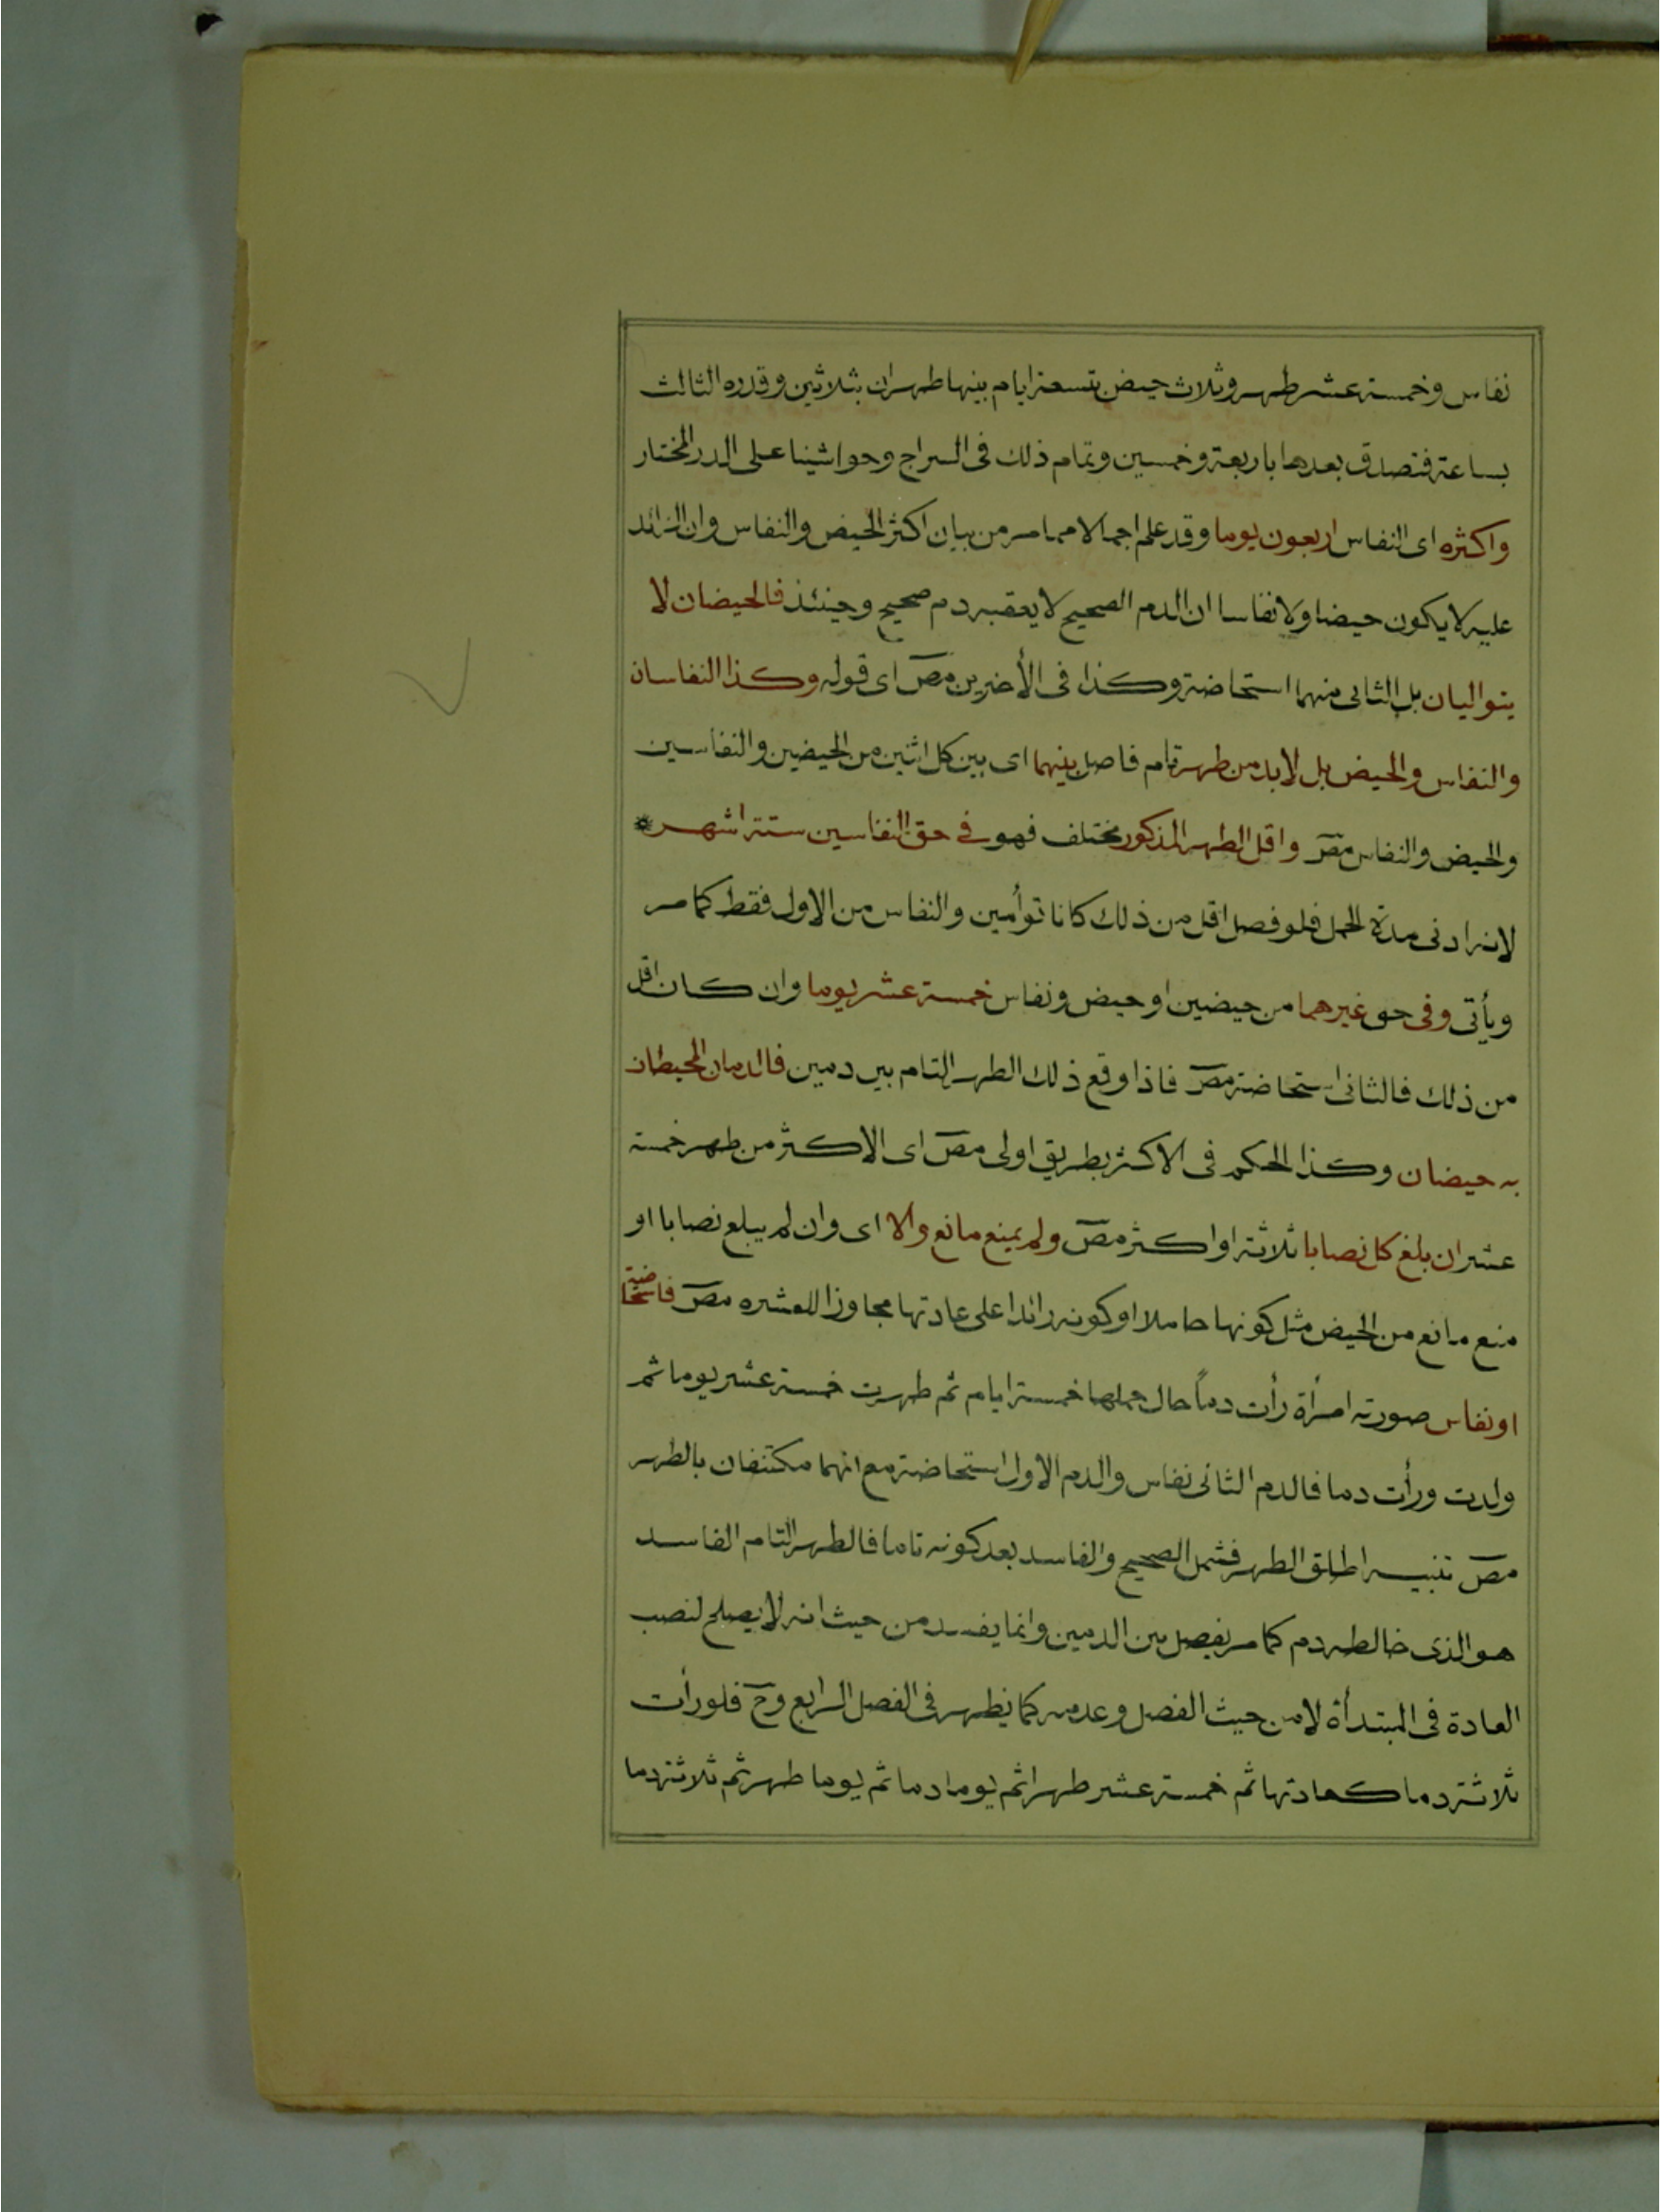 نفاس وخمسة عشر طهر وثلاث حيض بتسعة ايام بينها طهران بثلاثين وقدره الثالث
بساعة فتصدق بعدها باربعة وخمسين وتمام ذلك فى السراج وحواشينا على الدر المختار
واكثره اى النفاس اربعون يوما وقد علم اجمالا مما مر من بيان اكثر الحيض والنفاس وان الزائد
عليه لا يكون حيضا ولا نفاسا ان الدم الصحيح لا يعقبه دم صحيح وحينئذ فالحيضان لا
يتواليان بل الثانى منهما استحاضة وكذا فى الأخيرين مصـ اى قوله وكذا النفاسان
والنفاس والحيض بل لابد من طهر تام فاصل بينهما اى بين كل اثنين من الحيضين والنفاسين
والحيض والنفاس مصـ واقل الطهر المذكور مختلف فهو فى حق النفاسين ستة اشهر *
لانه ادنى مدة الحمل فلو فصل اقل من ذلك كانا توأمين والنفاس من الاول فقط كما مر
ويأتى وفى حق غيرهما من حيضين او حيض ونفاس خمسة عشر يوما وان كان اقل
من ذلك فالثانى استحاضة مصـ فاذا وقع ذلك الطهر التام بين دمين فالدمان المحيطان
به حيضان وكذا الحكم فى الاكثر بطريق اولى مصـ اى الاكثر من طهر خمسة
عشر ان بلغ كل نصابا ثلاثة او اكثر مصـ ولم يمنع مانع والا اى وان لم يبلغ نصابا او
منع مانع من الحيض مثل كونها حاملا او كونه زائدا على عادتها مجاوزا للعشره مصـ فاستحاضة
او نفاس صورته امرأة رأت دماً حال حملها خمسة ايام ثم طهرت خمسة عشر يوما ثم
ولدت ورأت دما فالدم الثانى نفاس والدم الاول استحاضة مع انهما مكتنفان بالطهر
مصـ تنبيه اطلق الطهر فشمل الصحيح والفاسد بعد كونه تاما فالطهر التام الفاسد
هو الذى خالطه دم كما مر يفصل بين الدمين وانما يفسد من حيث انه لا يصلح لنصب
العادة فى المبتدأة لا من حيث الفصل وعدمه كما يظهر فى الفصل الرابع وحـ فلو رأت
ثلاثة دما كعادتها ثم خمسة عشر طهرا ثم يوما دما ثم يوما طهر ثم ثلاثة دما